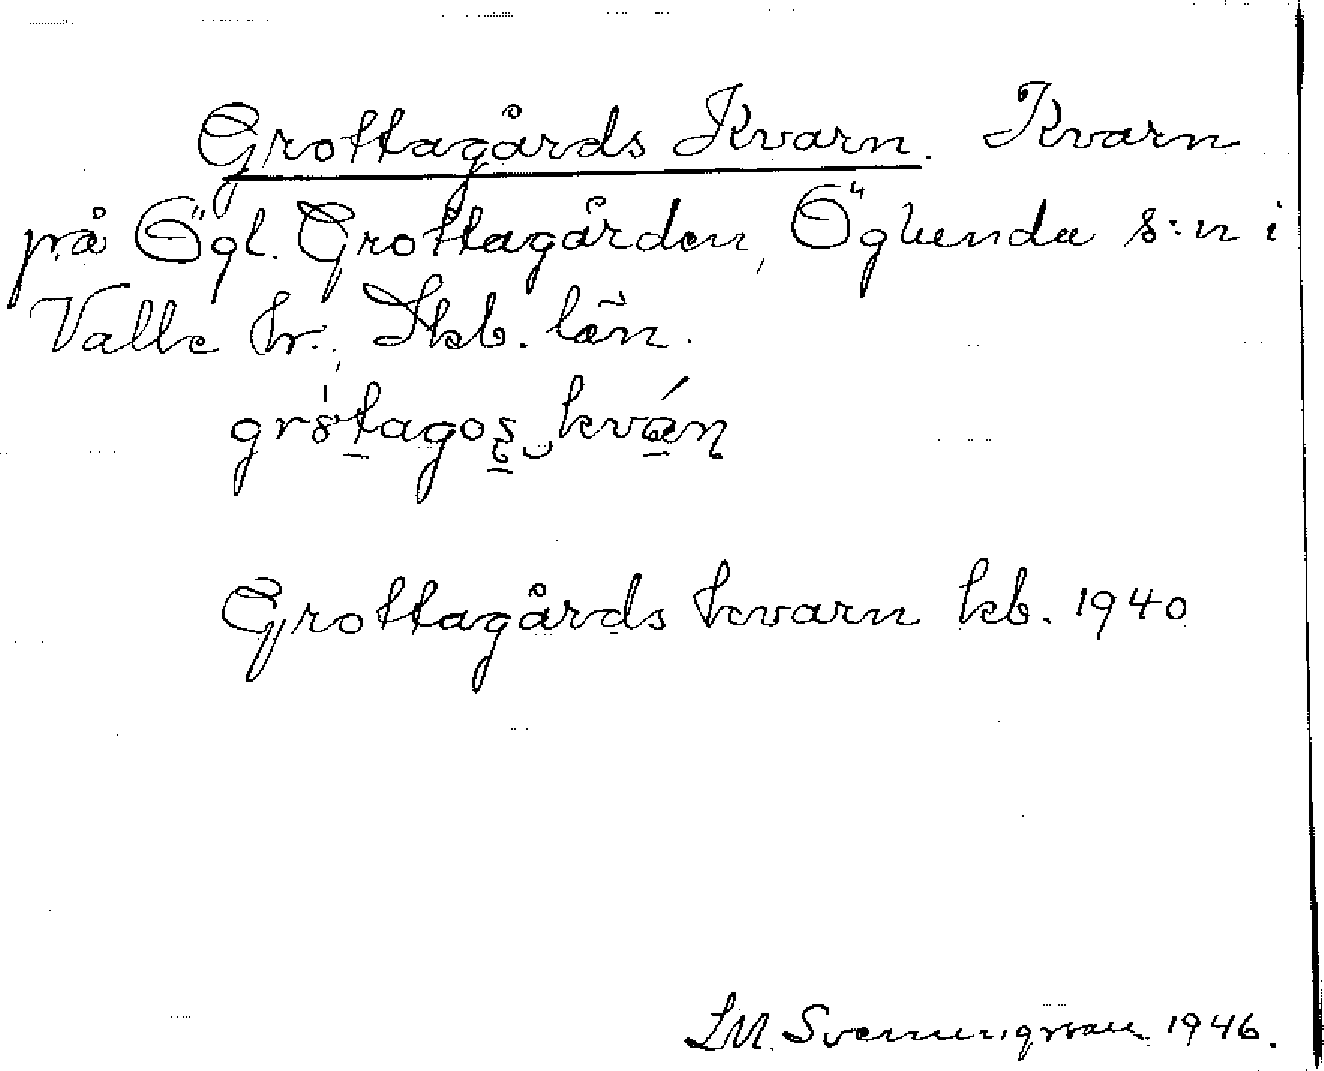 Grottagårds Kvarn. Kvarn
på Ögl. Grottagården, Öglunda s:n i
Valle hr., Skb. län.
Grottagårds kvarn kb. 1940
Svenungsson 1946.